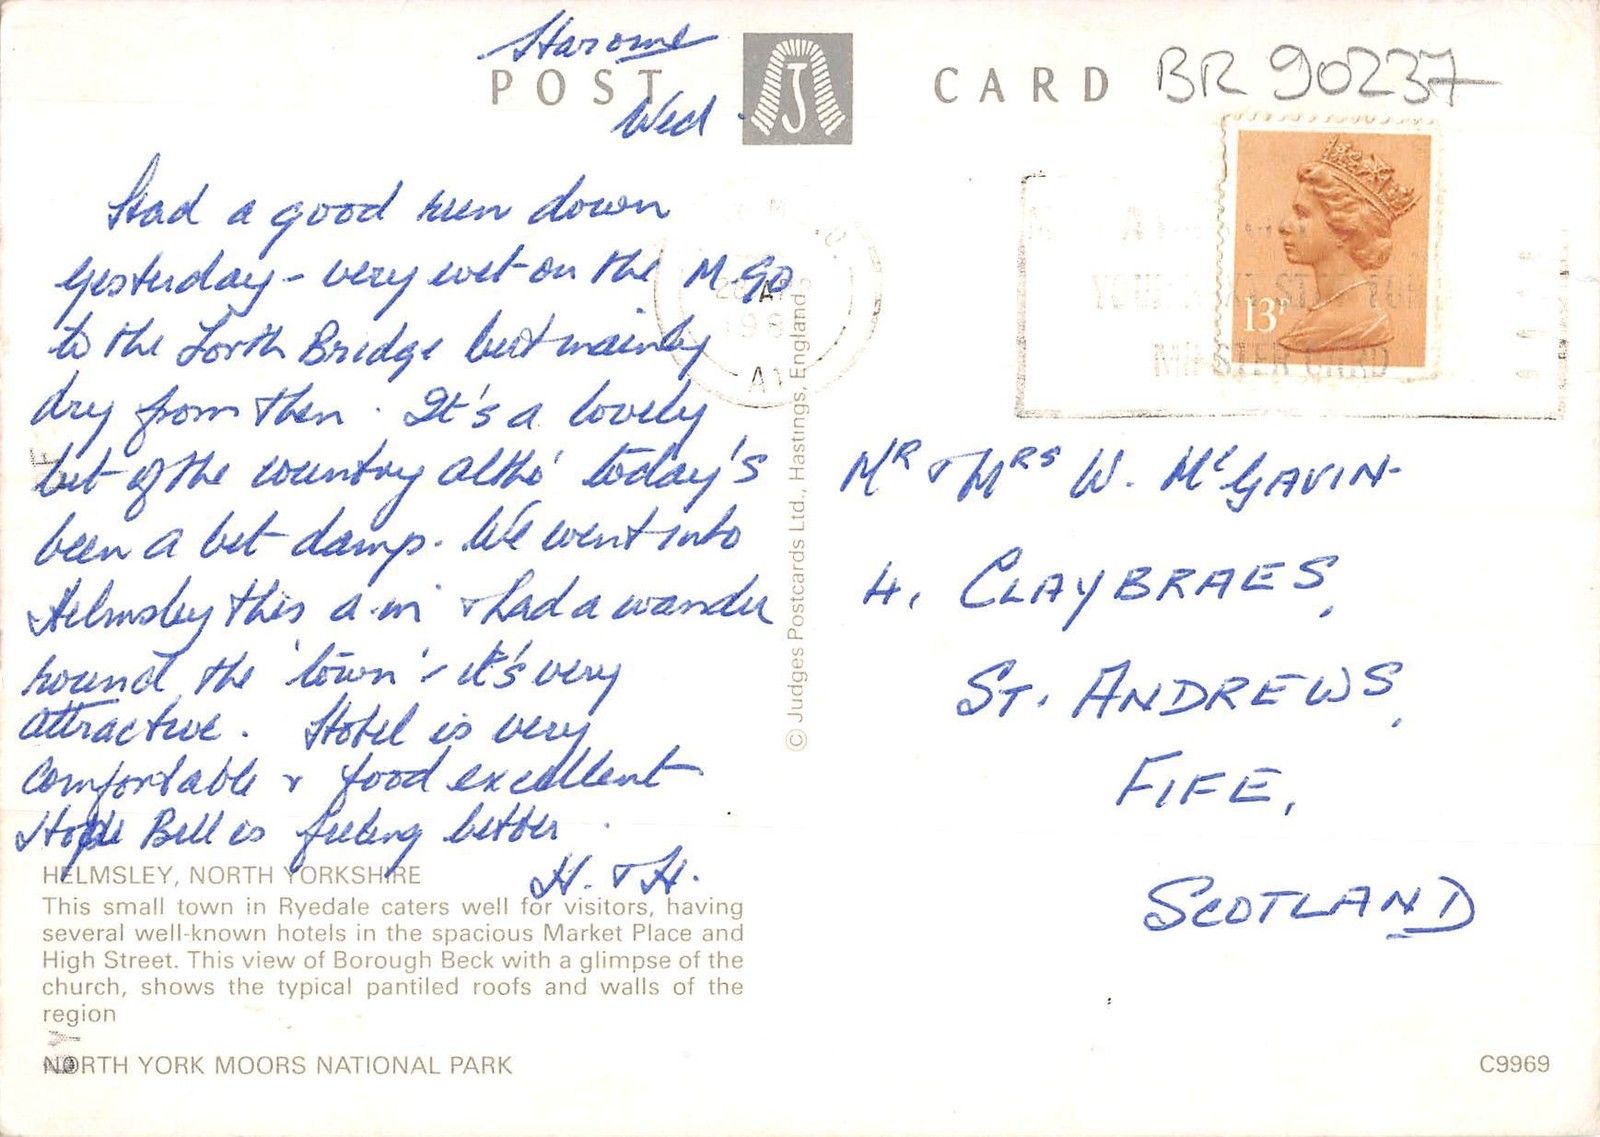 Harome
POST CARD
BR 90237
Wed.
Had a good run down
yesterday - very wet on the M90
to the Forth Bridge but mainly
dry from then. It's a lovely
bit of the country altho' today's
been a bit damp. We went into
Helmsley this a.m. & had a wander
round the 'town' - it's very
attractive. Hotel is very
comfortable & food excellent
Hope Bell is feeling better.
H. & H.
13P
Mr & Mrs W. McGavin
4, CLAYBRAES,
ST. ANDREWS,
FIFE,
SCOTLAND
© Judges Postcards Ltd., Hastings, England
HELMSLEY, NORTH YORKSHIRE
This small town in Ryedale caters well for visitors, having
several well-known hotels in the spacious Market Place and
High Street. This view of Borough Beck with a glimpse of the
church, shows the typical pantiled roofs and walls of the
region
NORTH YORK MOORS NATIONAL PARK
C9969